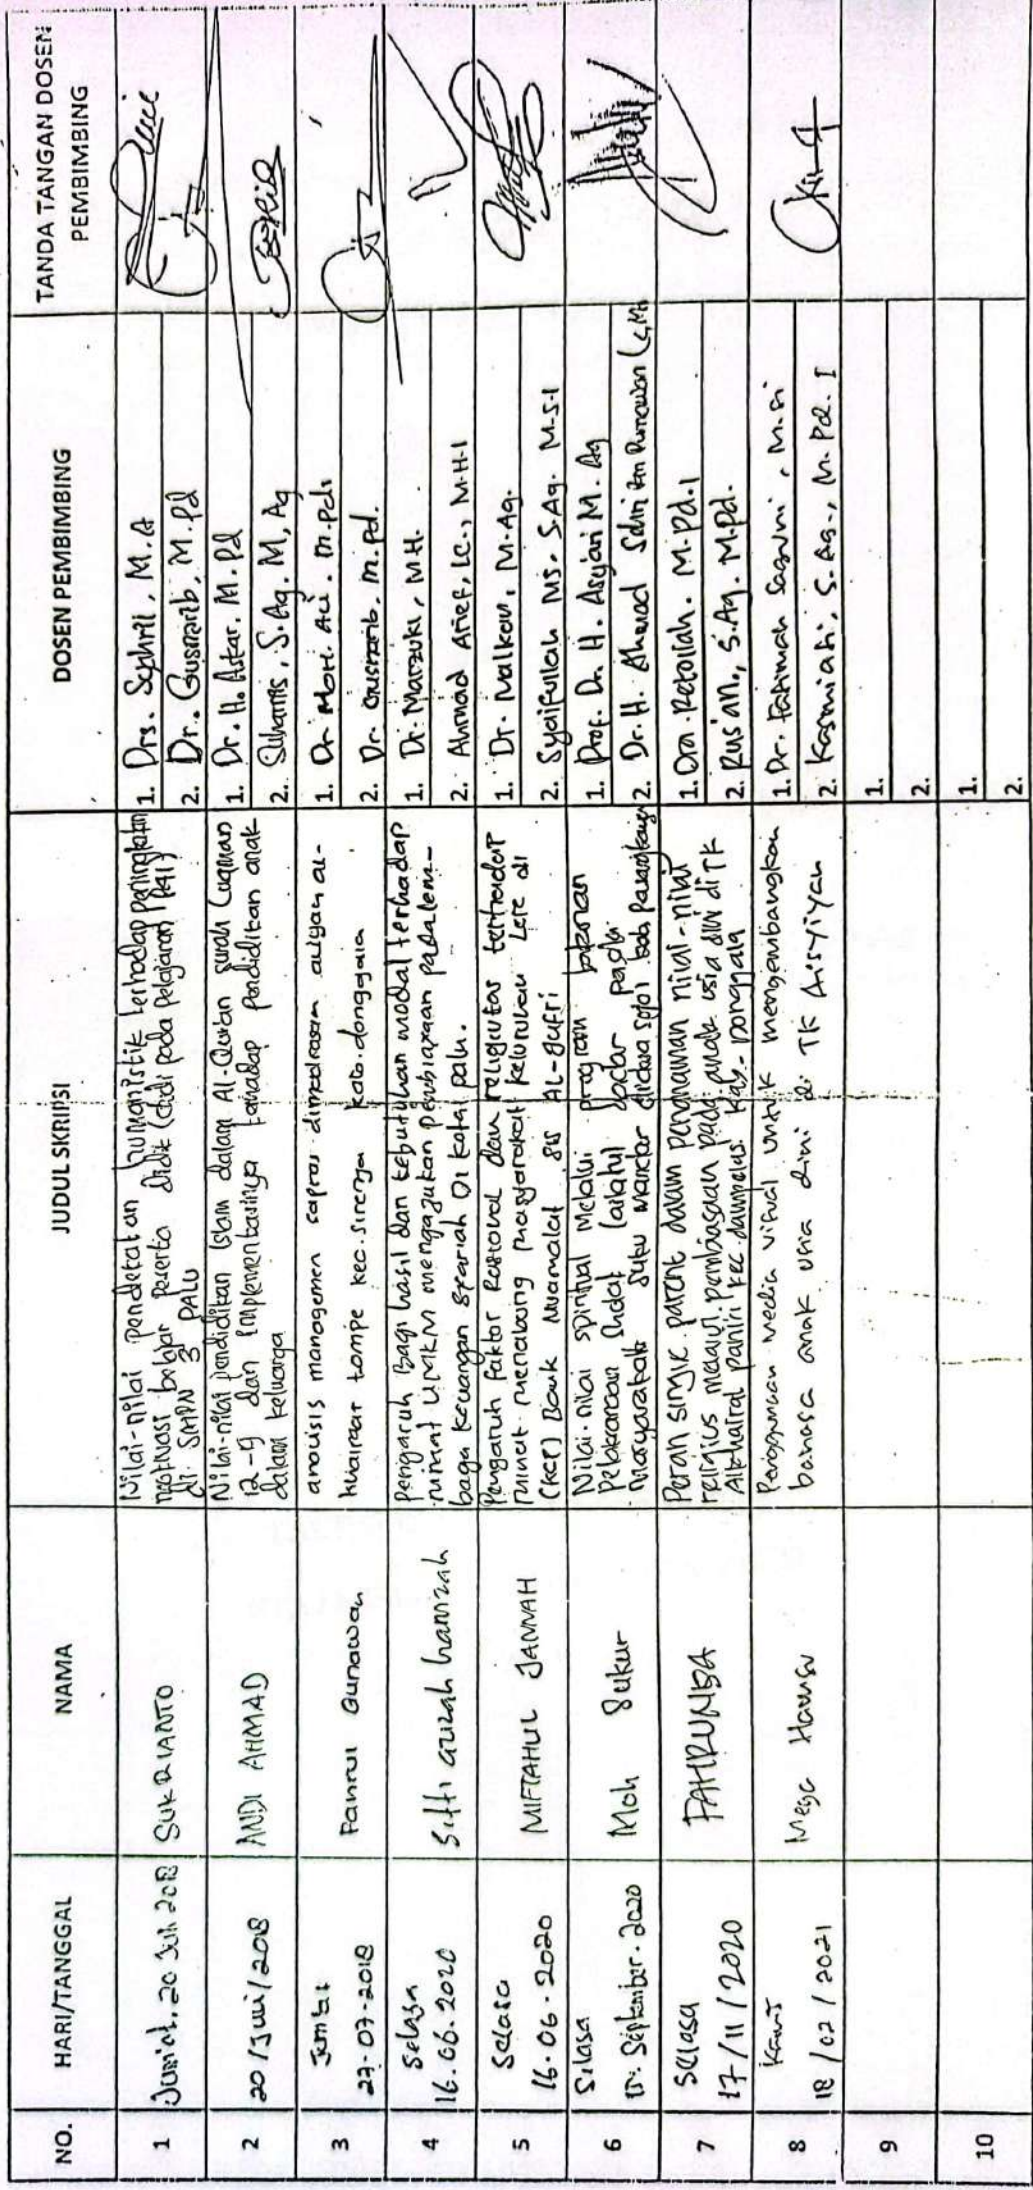 NO. HARI/TANGGAL NAMA JUDUL SKRIPSI DOSEN PEMBIMBING TANDA TANGAN DOSEN PEMBIMBING
1 Jum'at, 20 Juli 2018 SUKRIANTO
Nilai-nilai pendekatan humanistik terhadap peningkatan
motivasi belajar peserta didik (studi pada pelajaran PAI)
di SMPN 3 PALU
1. Drs. Syahril, M.A
2. Dr. Gusnarib, M.Pd
2 20/Juli/2018 ANDI AHMAD
Nilai-nilai pendidikan Islam dalam Al-Quran surah Luqman
12-19 dan Implementasinya terhadap Pendidikan anak
dalam keluarga
1. Dr. H. Askar. M.Pd
2. Suharnis, S.Ag. M, Ag
3 Jumat
27-07-2018
Fahrul Gunawan
analisis manogemen sapras dimadrasah aliyah al-
khairaat tompe kec.sirenja kab.donggala
1. Dr. Moh. Ali. M.Pdi
2. Dr. Gusnarib. M.Pd.
4 Selasa
16.06.2020
Sitti azizah hamzah
Pengaruh Bagi hasil dan kebutuhan modal terhadap
minat UMKM mengajukan pembiayaan pada lem-
baga keuangan Syariah Di kota palu.
1. Dr. Marzuki, M.H.
2. Ahmad Arief, LC., M.H.I
5 Selasa
16.06.2020
MIFTAHUL JANNAH
Pengaruh faktor Rasional dan religiutas terhadap
minat menabung masyarakat kelurahan Lere di
(KCP) Bank Muamalat SIS AL-Jufri
1. Dr. Malkan, M.Ag.
2. Syaifullah MS, S.Ag. M.S.I
6 Selasa
September. 2020
Moh Sukur
Nilai-nilai spiritual Melalui program
pelaksanaan Shalat lailatul pada
masyarakat suku mandar didesa
1. Prof. Dr. H. Asyjari M. Ag
2. Dr. H. Ahmad
7 Selasa
17/11/2020
FAHRUNISA
Peran single parent dalam penanaman nilai-nilai
religius melalui pembiasaan pada anak usia dini di TK
Alkhairat kec. dampelas. Kab. Donggala
1. Dra. Retoliah. M.Pd.I
2. Rus'an., S.Ag. M.Pd.
8 Kamis
18/02/2021
Mega
Penggunaan media visual untuk mengembangkan
bahasa anak usia dini di TK Aisyiyah
1. Dr. Fatimah Saguni, M.Si
2. Kasmiati, S.Ag., M.Pd.I
9
1.
2.
10
1.
2.